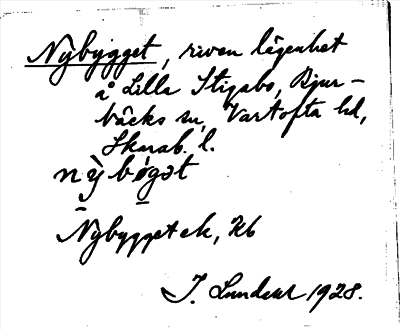 Nybygget, riven lägenhet
å Lilla Stigabo, Bjur-
bäcks sn, Vartofta hd,
Skarab. l.
nỳbøgət
Nybygget ek, Kb
J. Lundahl 1928.